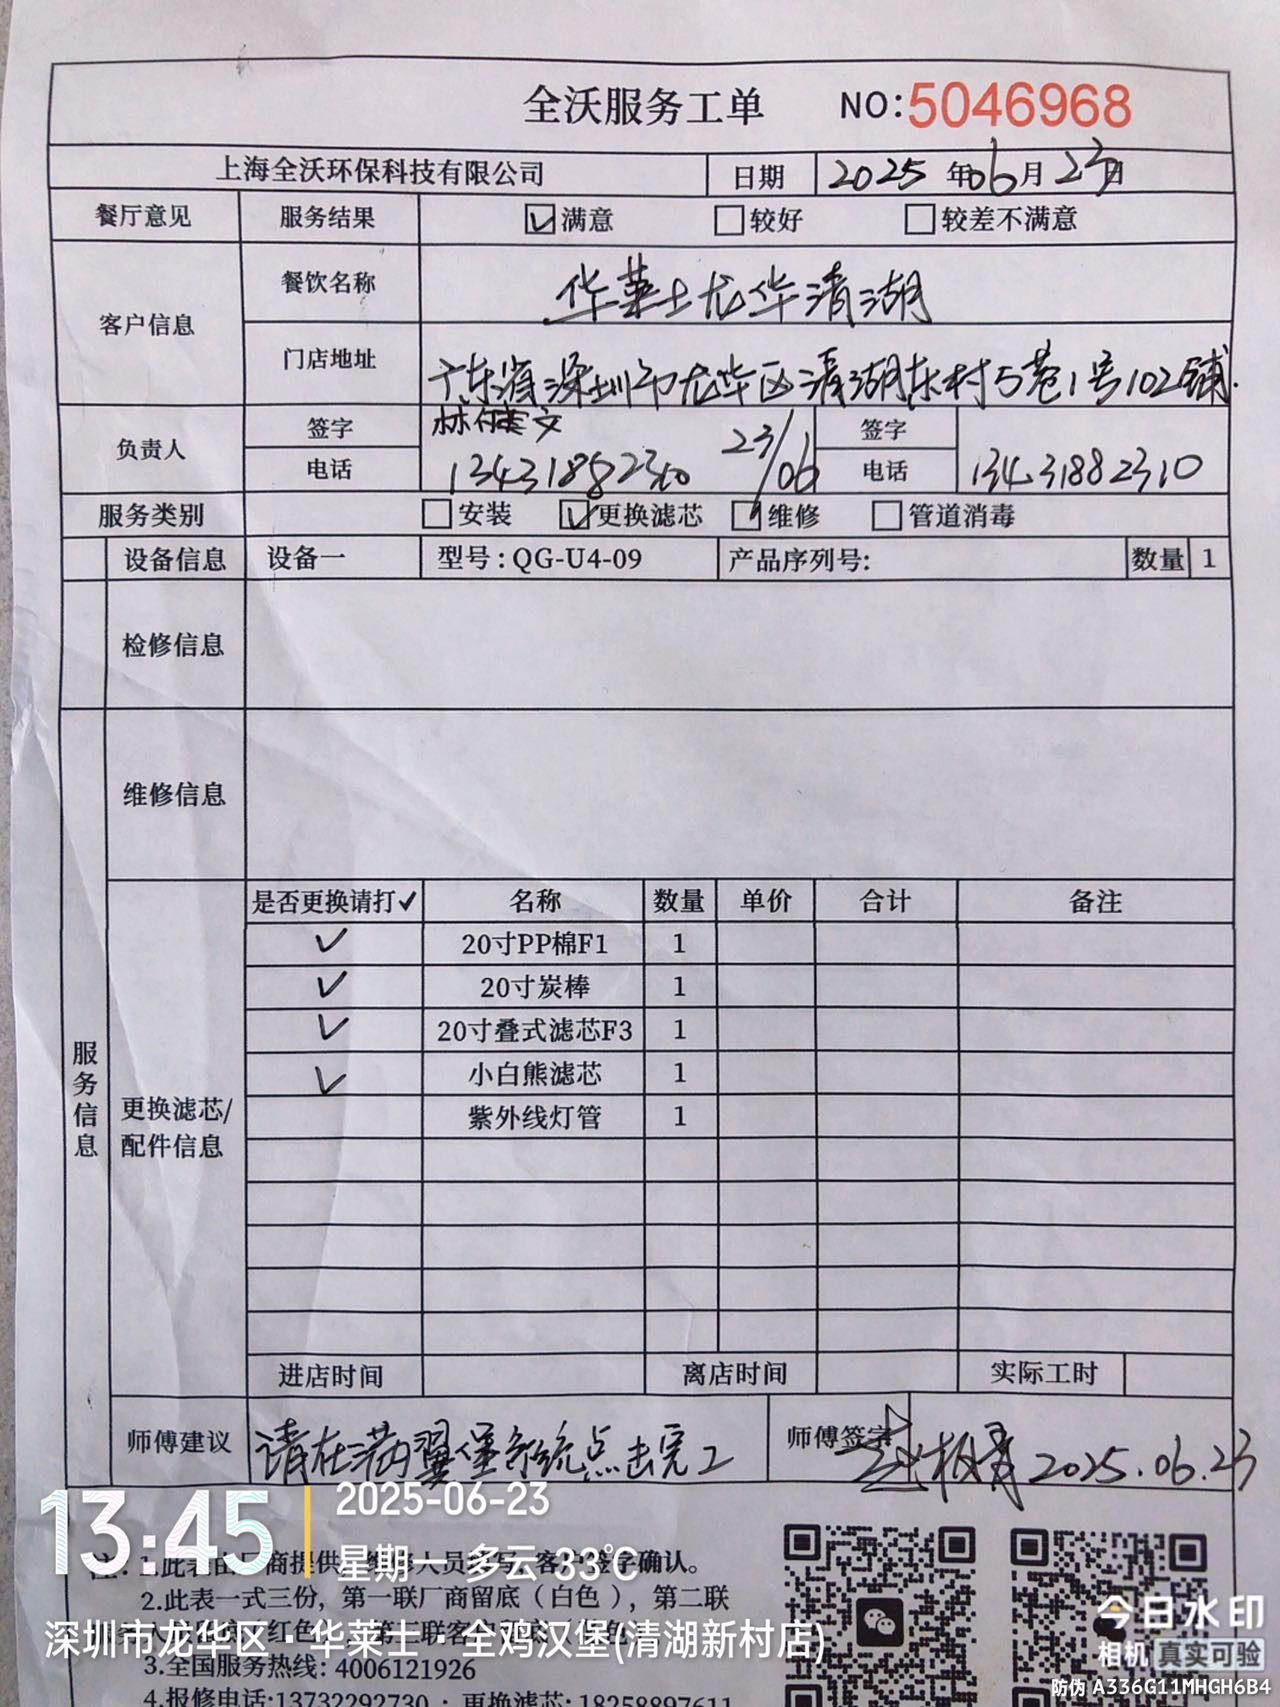 全沃服务工单 NO:5046968
上海全沃环保科技有限公司 日期 2025 年06月23日
餐厅意见 服务结果 ☑满意 □较好 □较差不满意
客户信息 餐饮名称 华莱士龙华清湖
门店地址 广东省深圳市龙华区清湖东村5巷1号102铺.
负责人 签字 林 文 23/06 签字
电话 电话 13431882310
服务类别 □安装 ☑更换滤芯 □维修 □管道消毒
设备信息 设备一 型号:QG-U4-09 产品序列号: 数量 1
检修信息
维修信息
服务信息
更换滤芯/配件信息
是否更换请打✓ 名称 数量 单价 合计 备注
✓ 20寸PP棉F1 1
✓ 20寸炭棒 1
✓ 20寸叠式滤芯F3 1
✓ 小白熊滤芯 1
紫外线灯管 1
进店时间 离店时间 实际工时
师傅建议 请在满 堡系统点击完工 师傅签字 2025.06.23
13:45
2025-06-23
星期一 多云 33℃
注: 1.此表由厂商提供,维修人员填写,客户签字确认。
2.此表一式三份，第一联厂商留底（白色），第二联
深圳市龙华区·华莱士·全鸡汉堡(清湖新村店)
3.全国服务热线: 4006121926
4.报修电话:13732292730 ；更换滤芯: 18258897611
今日水印
相机 真实可验
防伪 A336G11MHGH6B4